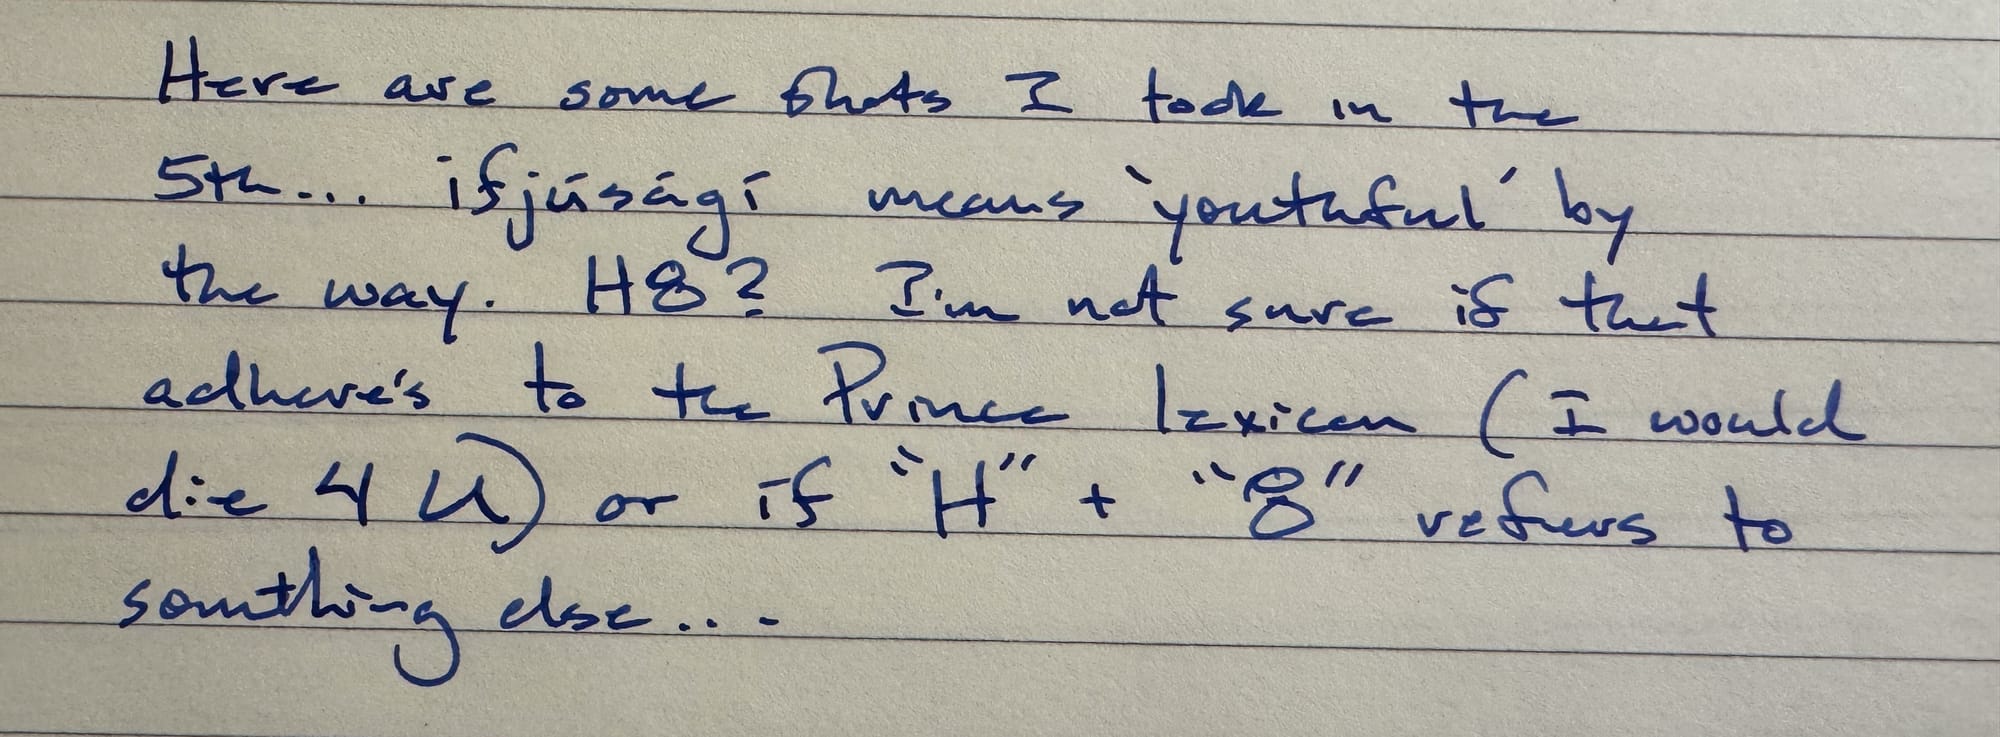 Here are some shots I took in the
5th... ifjúsági means 'youthful' by
the way. H8? I'm not sure if that
adhere's to the Prince lexicon (I would
die 4 U) or if "H" + "8" refers to
something else...